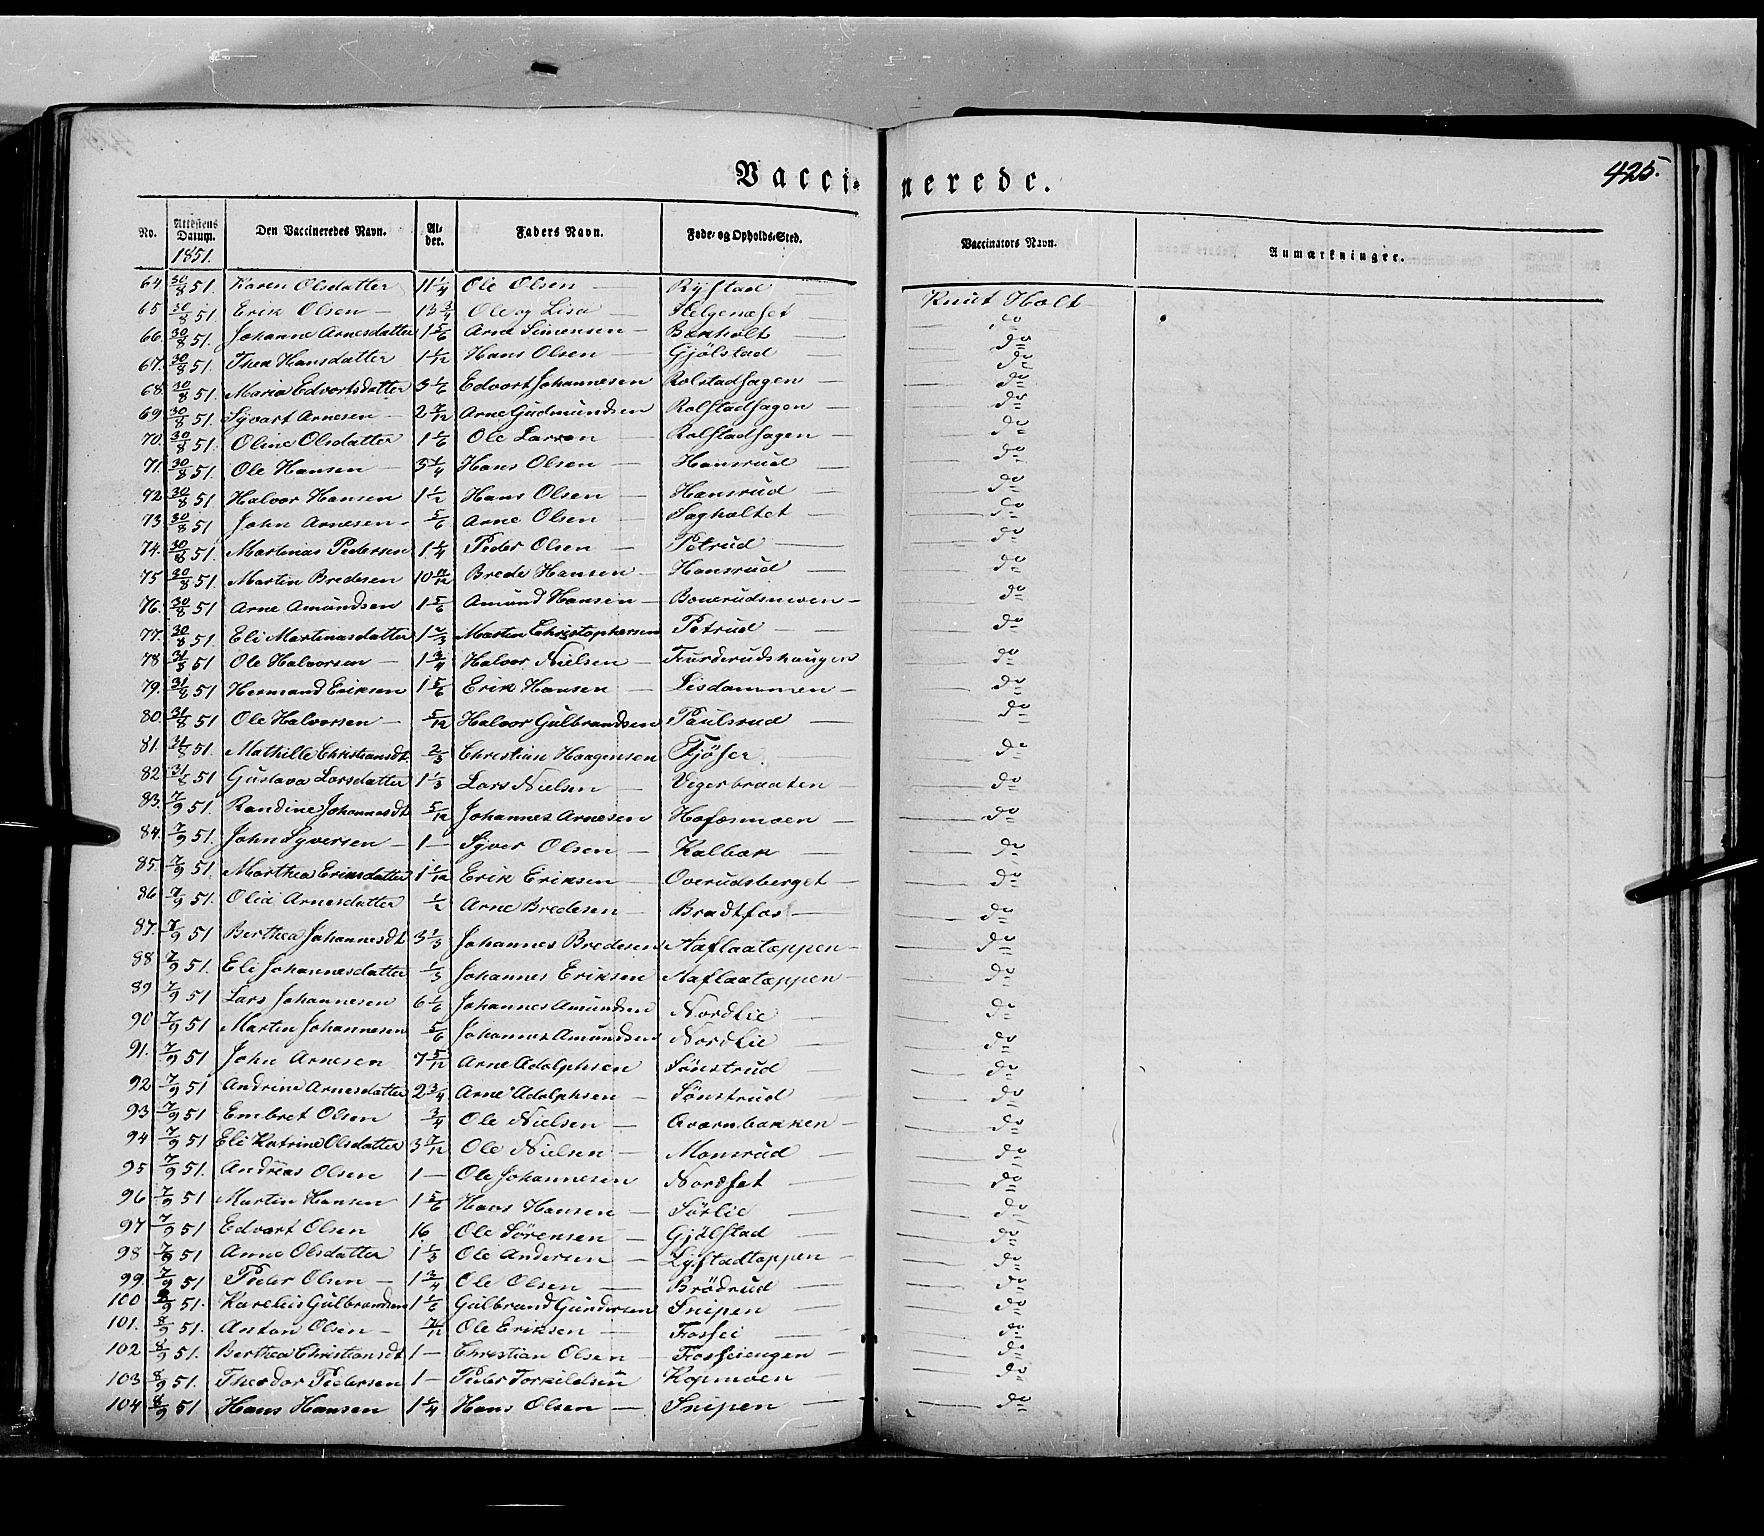 Vaccinerede.
425.
No. Attestens Datum. Den Vaccineredes Navn. Alder. Faders Navn. Føde- og Opholds-Sted. Vaccinators Navn. Anmærkninger.
1851.
64 30/8 51. Karen Olsdatter 11 1/4 Ole Olsen — Rÿstad — Knut Holt
65 30/8 51 Erik Olsen — 13 3/4 Ole og Lisa Helgenæset — do
66. 30/8 51. Johanne Arnesdatter 1 5/6 Arne Simensen — Bakholt — do
67. 30/8 51. Thea Hansdatter 1 1/12 Hans Olsen — Gjölstad — do
68. 30/8 51. Maria Edvartsdatter 3 1/6 Edvart Johannesen Rolstadsagen — do
69 30/8 51. Syvart Arnesen — 2 7/12 Arne Gudmundsen Rolstadsagen — do
70. 30/8 51. Oline Olsdatter 1 1/6 Ole Larsen — Rolstadsagen — do
71. 30/8 51. Ole Hansen — 3 1/4 Hans Olsen — Hansrud — do
72. 30/8 51 Halvor Hansen 1 1/2 Hans Olsen — Hansrud — do
73. 30/8 51 John Arnesen — 5/6 Arne Olsen — Sagholtet — do
74. 30/8 51. Martinus Pedersen 1 1/4 Peder Olsen — Petrud — do
75 30/8 51. Martin Bredesen 10 11/12 Brede Hansen — Hansrud — do
76. 30/8 51 Arne Amundsen 1 5/6 Amund Hansen — Bonerudsmoen — do
77. 30/8 51. Eli Martinusdatter 1 2/3 Martin Christophersen Petrud — do
78 31/8 51 Ole Halvorsen — 1 3/4 Halvor Nielsen — Furderudshaugen do
79. 31/8 51 Hermand Eriksen 1 5/6 Erik Hansen — Lisdammen — do
80. 31/8 51 Ole Halvorsen — 5/12 Halvor Gulbrandsen Paulsrud — do
81. 31/8 51. Mathille Christiansdt. 2/3 Christian Haagensen Fjöser. do
82 31/8 51 Gustava Larsdatter 1 1/3 Lars Nielsen — Vegerbraaten do
83. 7/9 51. Randine Johannesdt 5/12 Johannes Arnesen Hofosmoen — do
84. 7/9 51. John Syversen — 1 — Syver Olsen — Kalbak — do
85. 7/9 51. Marthea Eriksdatter 1 1/12 Erik Eriksen — Overudsberget — do
86 7/9 51. Olia Arnesdatter 1/2 Arne Bredesen — Bradtfos — do
87. 7/9 51 Berthea Johannesdt. 3 1/3 Johannes Bredesen Aaflaatæppen — do
88 7/9 51. Eli Johannesdatter 1/3 Johannes Eriksen Aaflaatæppen — do
89 7/9 51 Lars Johannesen 6 1/6 Johannes Amundsen Nordlie — do
90 7/9 51 Martin Johannesen 5/6 Johannes Amundsen Nordlie — do
91. 7/9 51 John Arnesen 7 5/12 Arne Adolphsen Sönstrud — do
92 7/9 51 Andrine Arnesdatter 2 3/4 Arne Adolphsen — Sönstrud — do
93 7/9 51 Embret Olsen 3/4 Ole Nielsen — Qværnbakken — do
94 7/9 51 Eli Katrine Olsdatter 3 7/12 Ole Nielsen — Monsrud — do
95 7/9 51. Andreas Olsen 1 — Ole Johannesen Nordset — do
96 7/9 51 Martin Hansen 1 5/6 Hans Hansen — Sörlie — do
97 7/9 51 Edvart Olsen 16 Ole Sörensen — Gjölstad — do
98 7/9 51 Anne Olsdatter 1 1/3 Ole Andersen — Lystadtæppen — do
99. 7/9 51 Peder Olsen — 1 3/4 Ole Olsen — Brödrud — do
100 8/9 51. Karelius Gulbrandsen 1 1/6 Gulbrand Gundersen Snipen — do
101. 8/9 51. Anton Olsen — 7/12 Ole Eriksen — Fossei — do
102 8/9 51. Berthea Christiansdt. 1 — Christian Olsen — Fosseiengen — do
103 8/9 51. Theodor Pedersen 1 — Peder Torkildsen Kopmoen — do
104 8/9 51 Hans Hansen 1 1/4 Hans Olsen — Snipen — do